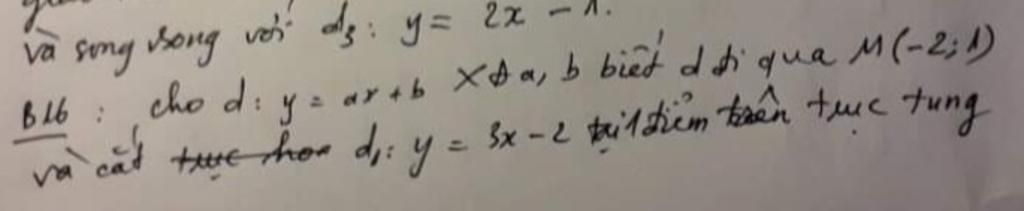 và song song với d₃: y = 2x - 1.
B16: cho d: y = ax + b XĐ a, b biết d đi qua M(-2; 1)
và cắt trục hoa d₁: y = 3x - 2 tại 1 điểm trên trục tung